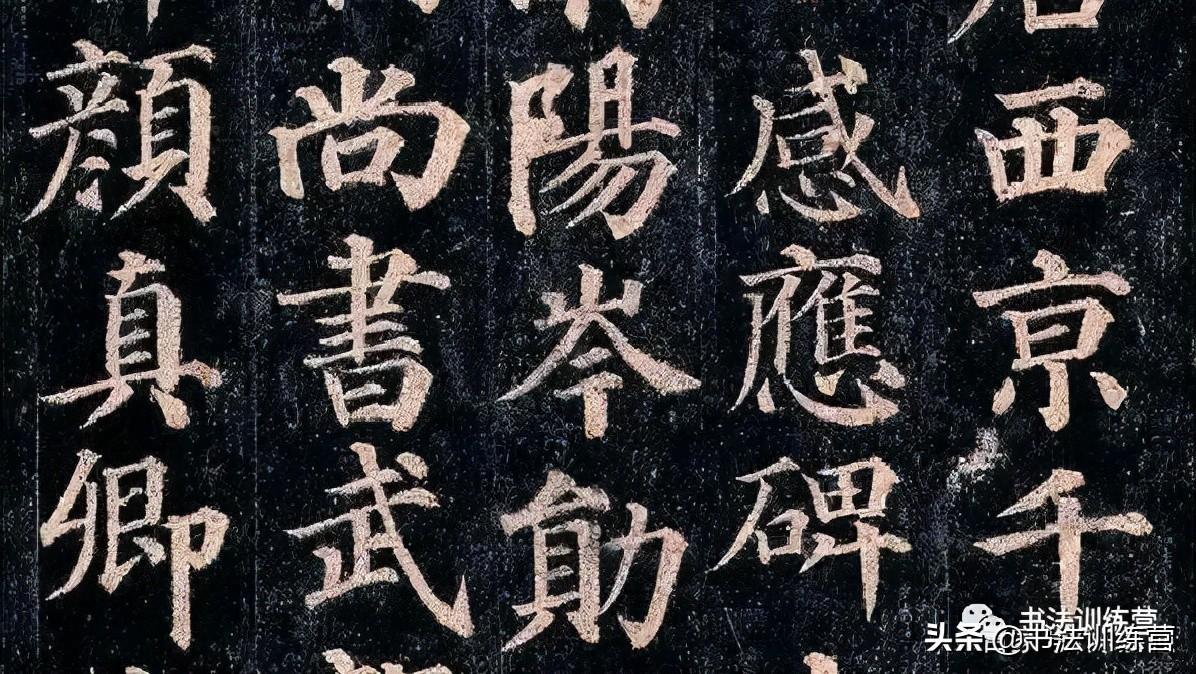 西亰千
感應碑
陽岑勛
尚書武
顔真卿
书法训练营
头条@书法训练营